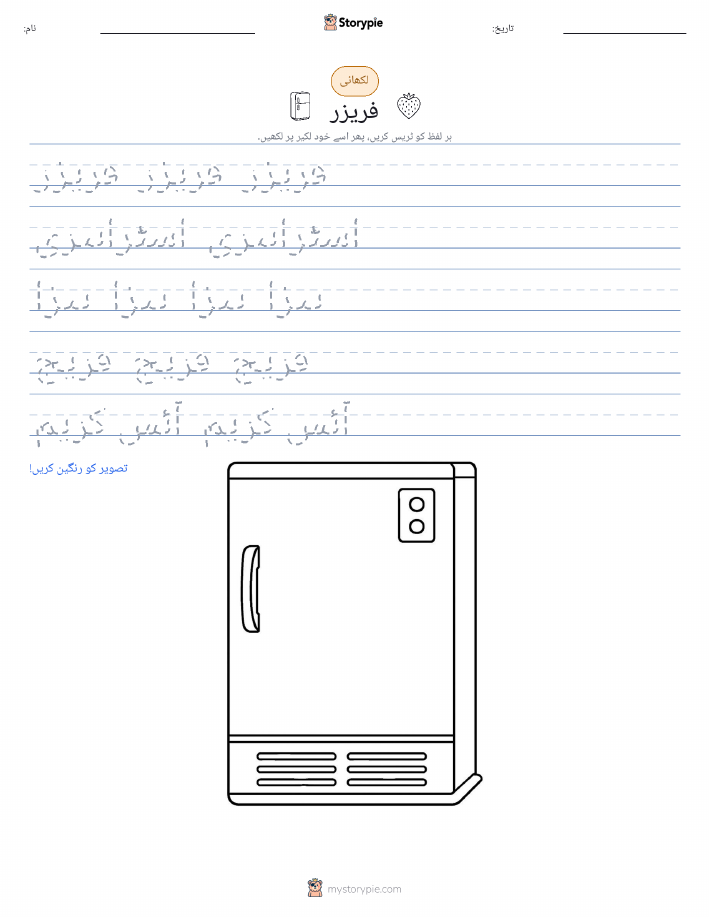 نام:
Storypie
تاریخ:
لکھائی
فریزر
ہر لفظ کو ٹریس کریں، پھر اسے خود لکیر پر لکھیں۔
فریزر فریزر فریزر
اسٹرابیری اسٹرابیری
پیزا پیزا پیزا پیزا
فریج فریج فریج
آئس کریم آئس کریم
تصویر کو رنگین کریں!
mystorypie.com